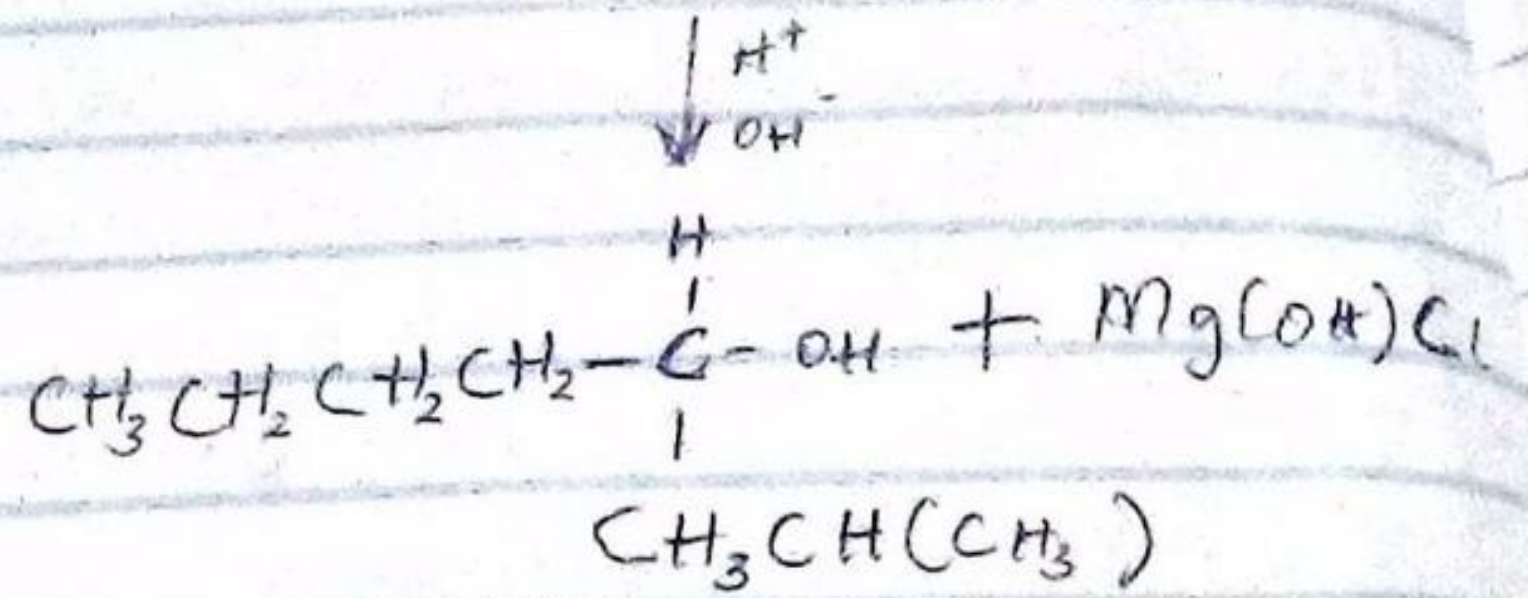 H⁺
OH⁻
H
CH₃CH₂CH₂CH₂-C-OH + Mg(OH)Cl
CH₃CH(CH₃)